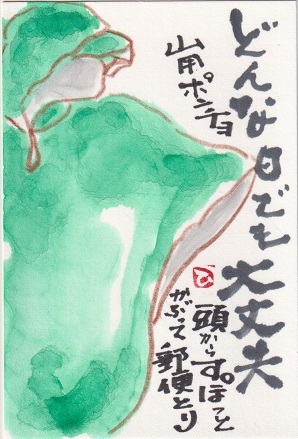 どんな日でも大丈夫
山用ポンチョ
頭からすぽっと
かぶって郵便とり